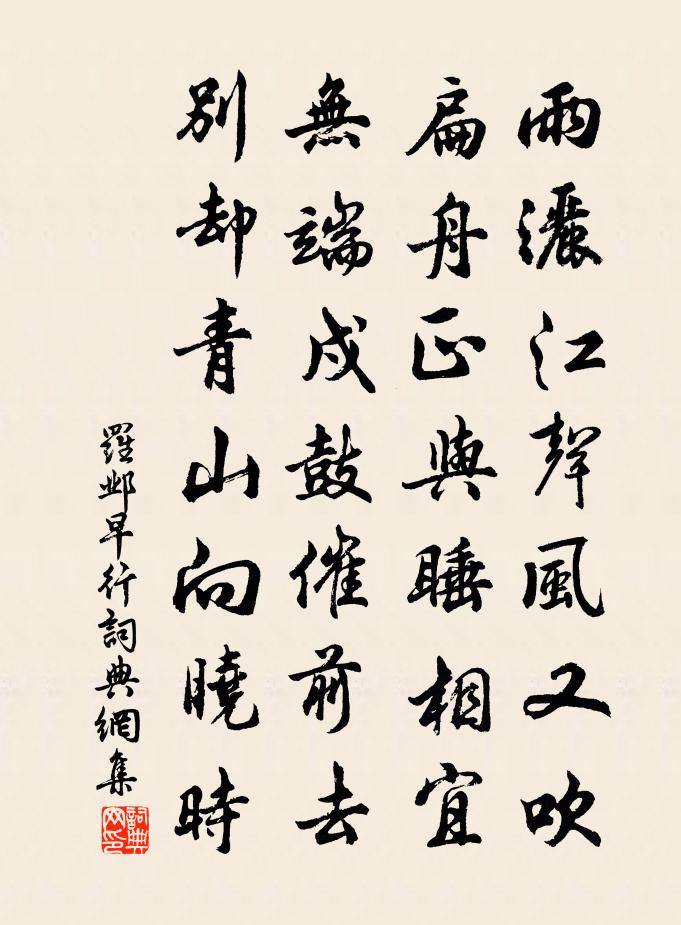 雨灑江聲風又吹
扁舟正與睡相宜
無端戍鼓催前去
別却青山向曉時
羅鄴早行詞典網集
詞典
网印